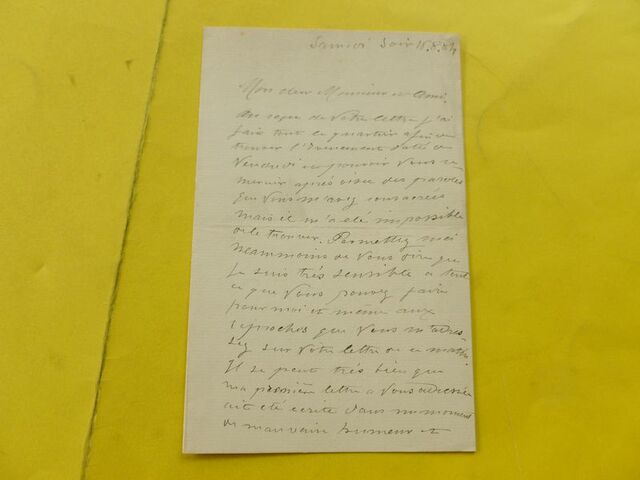 Samedi Soir 16.8.84
Mon cher Monsieur et Ami.
Au reçu de votre lettre j'ai
fais tout le quartier afin de
trouver l'Evènement daté de
Vendredi et pouvoir Vous re
mercier après visu des paroles
que Vous m'avez consacrées
mais il m'a été impossible
de le trouver. Permettez moi
néammoins de Vous dire que
je suis très sensible a tout
ce que Vous pouvez faire
pour moi et meme aux
reproches que Vous m'adres-
sez sur Votre lettre de ce matin.
Il se peut très bien que
ma première lettre a Vous adressée
ait été écrite dans un moment
de mauvaise humeur et